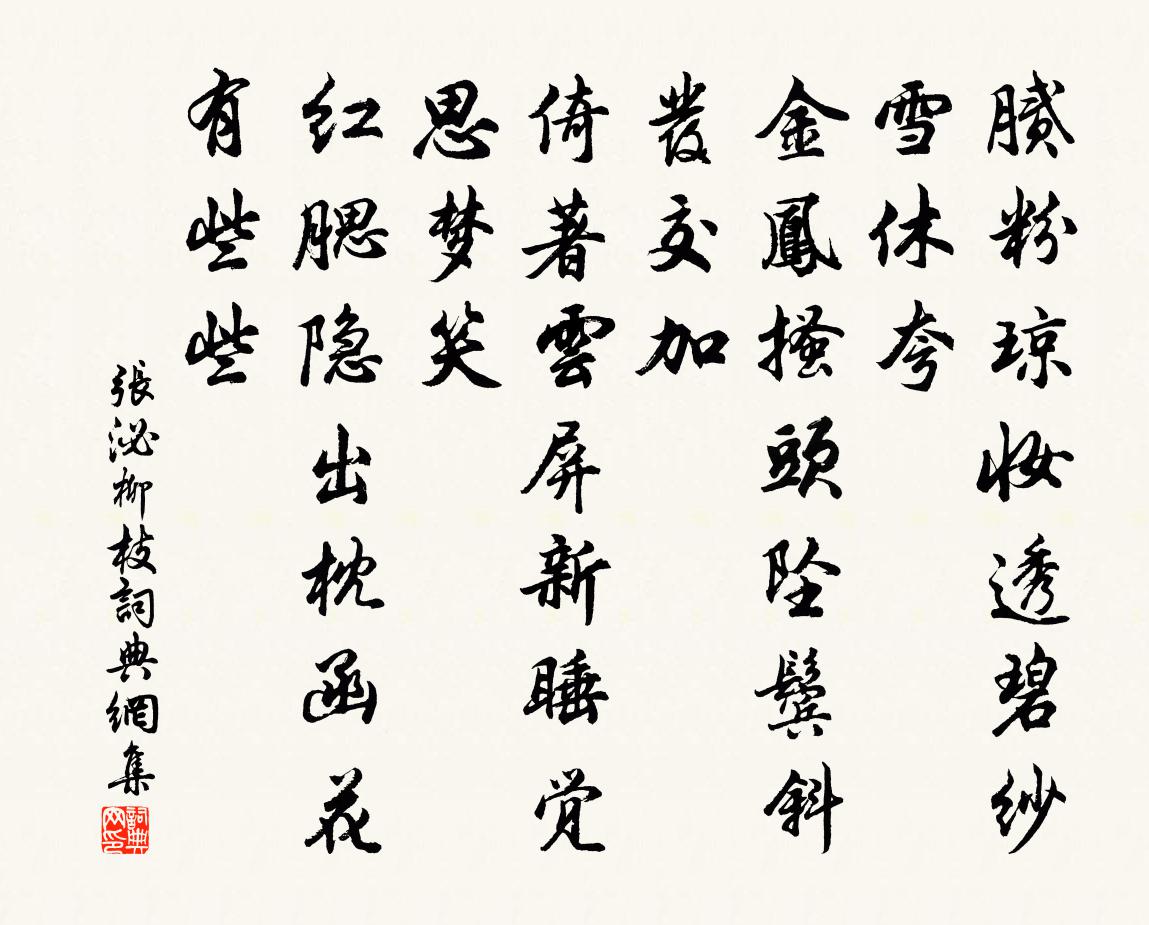 腻粉琼妆透碧纱
雪休夸
金鳳搔頭坠鬓斜
發交加
倚著雲屏新睡觉
思梦笑
红腮隐出枕函花
有些些
張泌柳枝詞典網集
詞典网印